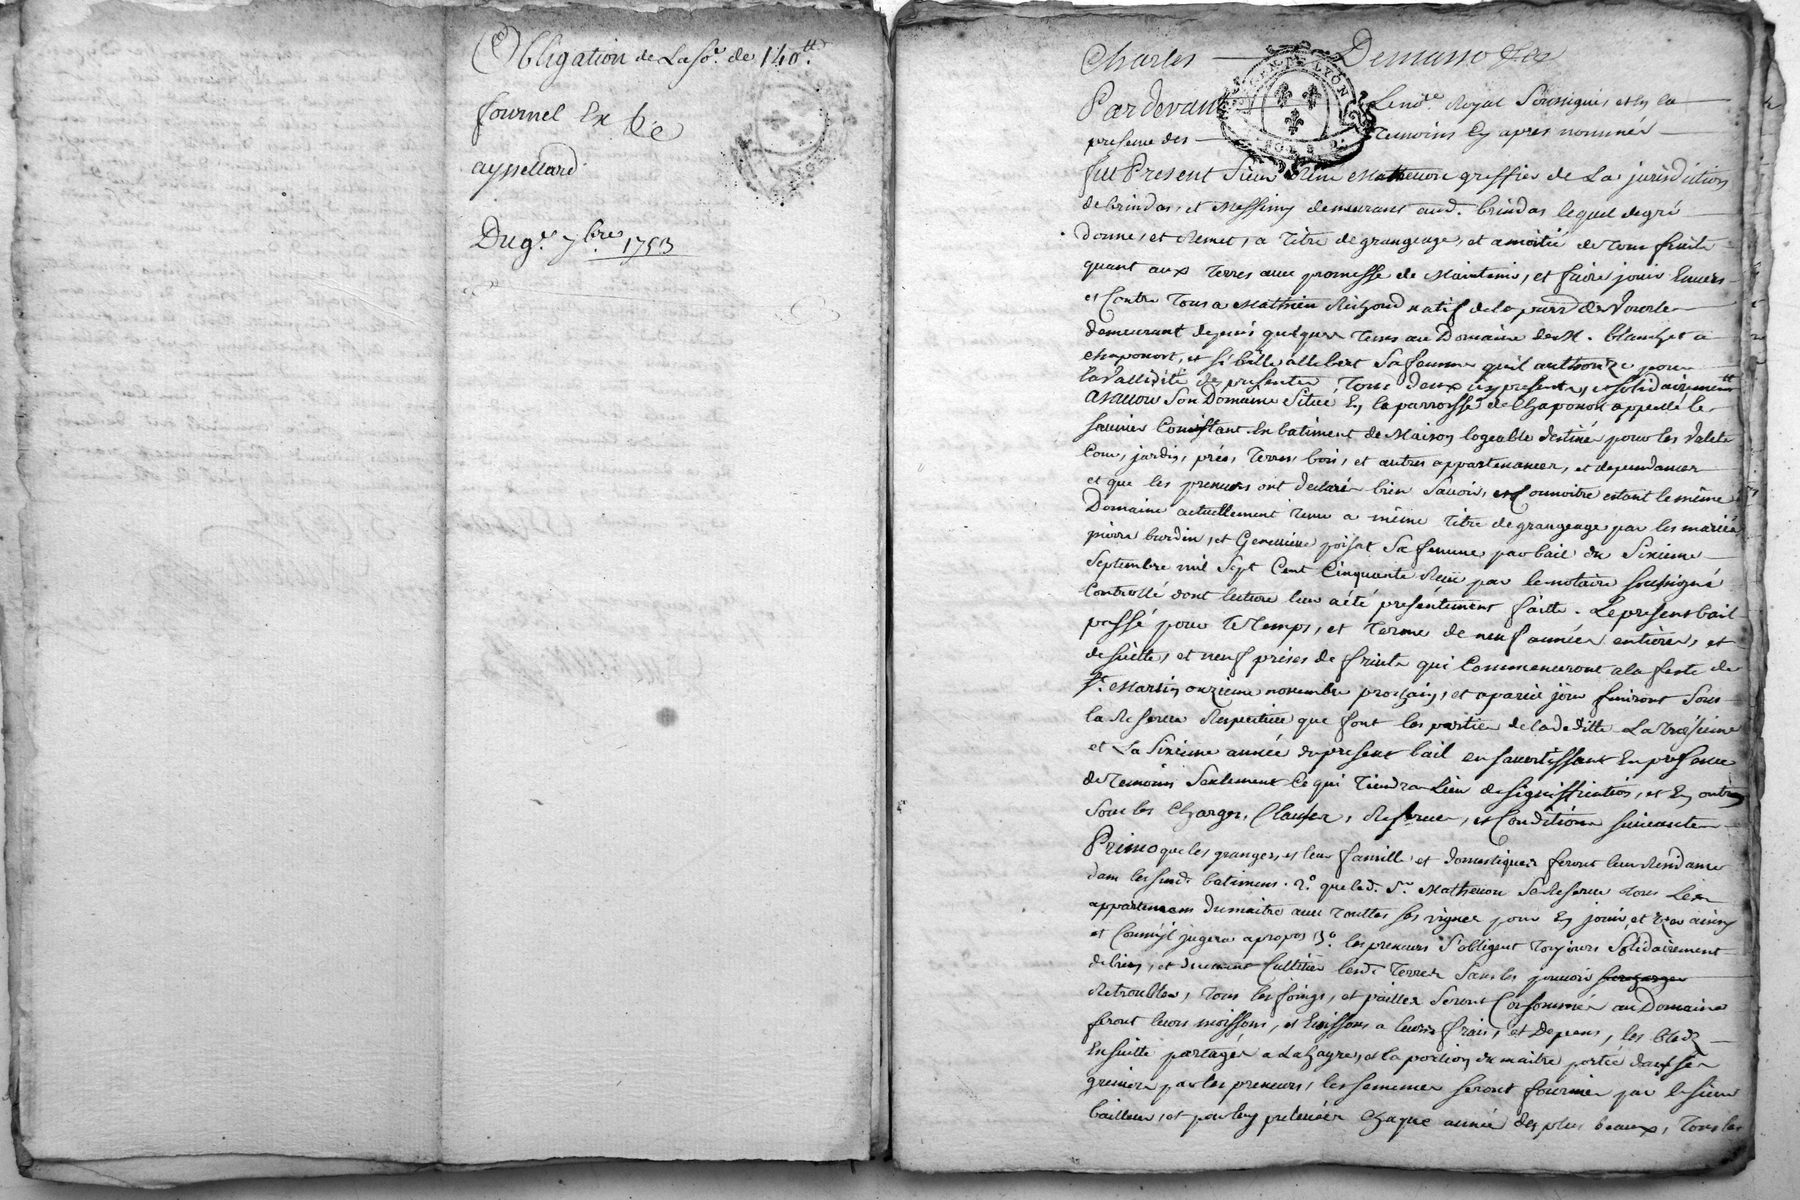 Obligation de La so. de 140tt.
fournel Ex
aypellard
Du 9e 7bre 1753
GENT. DE LYON
Charles
Pardevant Le not.re Royal Soussigné, et en la
presence des Temoins Cy apres nommés
fut Present Sieur Rene Mathevon greffier de La jurisdiction
de brindas, et Messimy demeurant aud. brindas lequel de gré
donne, et Remet, a Titre de grangeage, et a moitié de tous fruits
quant aux terres avec promesse de Maintenir, et faire jouir Envers
et Contre Tous a Mathieu natif de la parr.se de Vourle
demeurant depuis quelques Tems au Domaine de M. blanchet a
chaponost, et sibille allibert Sa femme quil authorize pour
la Vallidité des presentes, Tous deux icy presents, et solidairement
a savoir Son Domaine Situé En la parroisse de Chaponost appellé le
saunier Consistant En batiment de Maison logeable destiné pour les Valets
Cour, jardin, prés, Terres, bois, et autres appartenances, et dependances
et que les preneurs ont declarés bien Savoir, et Connoitre estant le même
Domaine actuellement tenu a même Titre de grangeage par les mariés
pierre burdin, et Genevieve poisat Sa femme par bail du Sixieme
Septembre mil Sept Cent Cinquante Reçu par le notaire Soussigné
Controllé dont lecture leur a été presentement faitte. Le present bail
passé pour le Temps, et Terme de neuf années entieres, et
de suitte, et neuf prises de fruits qui Commenceront a la feste de
St. Martin onzieme novembre prochain, et a pareil jour finiront Sous
la Reserve Respective que font les parties de la deditte La troisieme
et La Sixieme année du present bail en s'avertissant En presence
de Temoins Seulement Ce qui Tiendra Lieu de signiffication, et En outre
Sous les Charges, Clauses, Reserves, et Conditions suivantes
Primo que les grangers, et leur famille et domestiques feront leur Residance
dans les susd. batimens. 2.o que led. Sr. Mathevon Se Reserve tous Les
appartemens du maitre avec touttes ses vignes pour En jouir, et user ainsy
et Comme jl jugera a propos 3.o les preneurs S'obligent Toujours Solidairement
de bien, et duement Cultiver lesd. Terres Sans les pouvoir surcharger
Retroubles, Tous les foings, et pailles Seront Consommés au Domaine
feront leurs moissons, et a leurs frais, et Depens, les bleds
Ensuitte partagés a et la portion du maitre portée dans ses
greniers par les preneurs, les semences seront fournies par le sieur
bailleur, et par luy prelevées Chaque année des plus beaux, Tous les